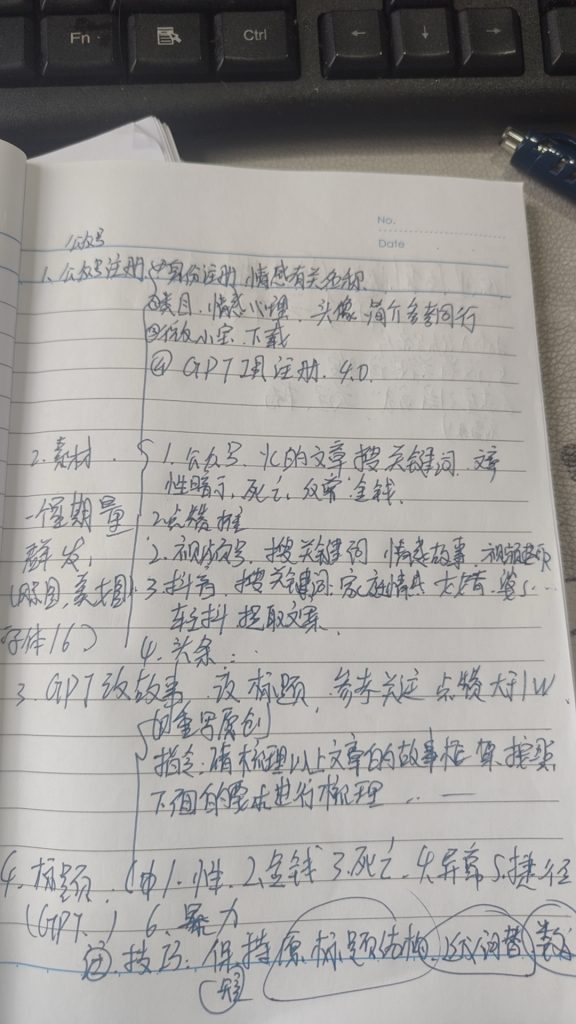 Fn
Ctrl
← ↓ →
No.
Date
公众号
1. 公众号注册 ①身份注册 情感有关名称
②类目,情感心理, 头像 简介参考同行
下载
④ GPT 注册. 4.0
2. 素材 1. 公众号. 的文章 搜关键词.
一个星期 量 性暗示, 死亡, 金钱.
2 点赞 推
群发, 2. 视频号, 搜关键词 情感故事.
3. 抖音, 搜关键词, 家庭情感
字体16) 轻抖 提取文案.
4. 头条 :
3. GPT改故事 改标题, 参考关注 点赞大于1W
的重写原创
指令: 请梳理以上文章的故事框架 按照
下面的要求进行梳理 .. —
4. 标题. ① 1. 性. 2. 金钱 3. 死亡. 4. 异常 5. 捷径
(GPT.) 6. 暴力
② 技巧: 保持原标题结构, 词替